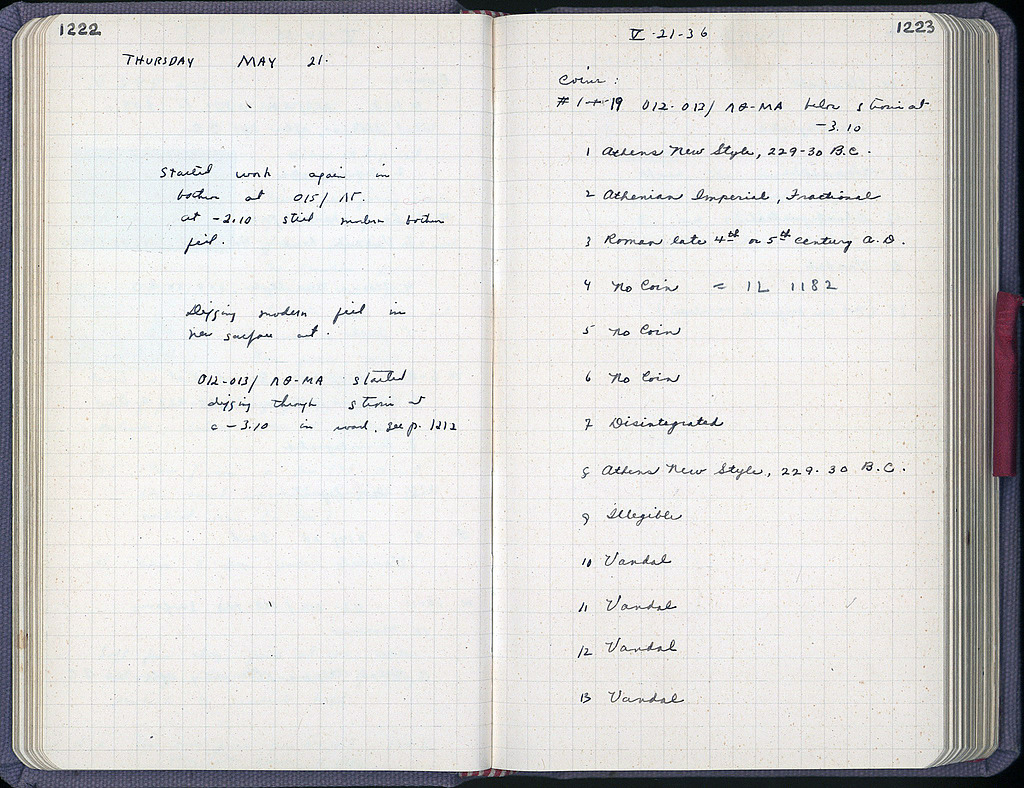 1222
THURSDAY MAY 21.
Started work again in
bothro at 015/ ΛΓ.
at -2.10 still modern bothro
fill.
Digging modern fill in
new surface cut.
012-013/ ΛΘ-ΜΑ started
digging through stroses at
c -3.10 in road. See p. 1212
1223
V-21-36
Coins:
#1-19 012-013/ ΛΘ-ΜΑ below stroses at
-3.10
1 Athens New Style, 229-30 B.C.
2 Athenian Imperial, Fractional
3 Roman late 4th or 5th century A.D.
4 No Coin = IL 1182
5 No Coin
6 No Coin
7 Disintegrated
8 Athens New Style, 229-30 B.C.
9 Illegible
10 Vandal
11 Vandal
12 Vandal
13 Vandal